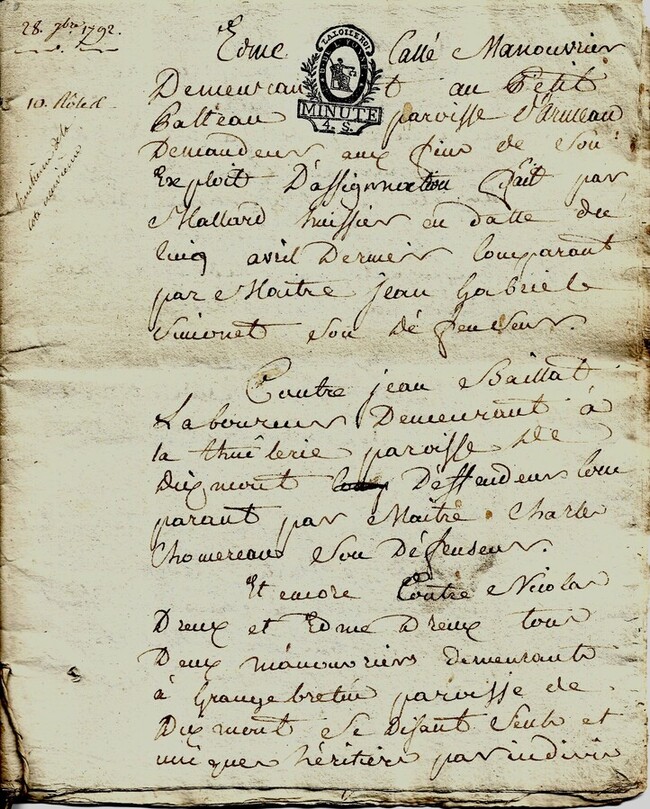 28. 9bre 1792.
10. Rôles
LA LOI LE ROI
MINUTE
4. S.
Edme Callé Manouvrier
Demeurant au Petit
Palteau paroisse d'armeau
Demandeur aux fins de Son
Exploit D'assignation fait par
Mallard huissier en datte du
cinq avril Dernier Comparant
par Maitre jean Gabriel
Simonet Son Défenseur.
Contre jean Baillat
Laboureur Demeurant à
la thuilerie paroisse De
Dixmont Deffendeur Com
parant par Maitre Charles
Chomereau Son Défenseur.
Et encore Contre Nicolas
Dreux et Edme Dreux tous
Deux manouvriers demeurants
à Grangebretin paroisse de
Dixmont Se Disant Seuls et
uniques héritiers par indivis